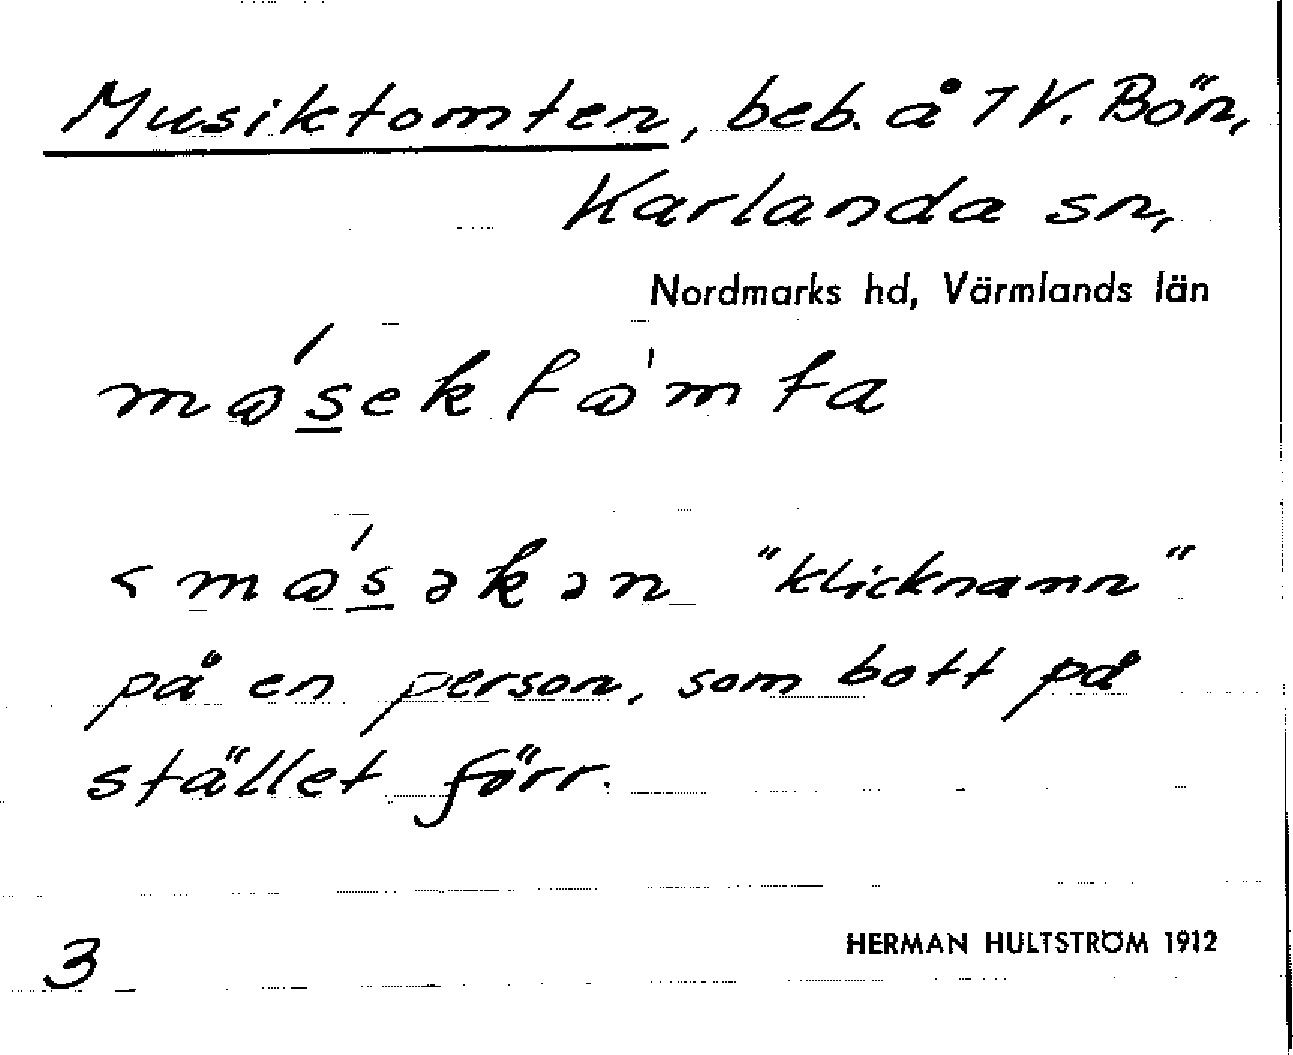 Musiktomten, beb. å 1 V. Bön,
Karlanda sn,
Nordmarks hd, Värmlands län
< "klicknamn"
på en person, som bott på
stället förr.
3
HERMAN HULTSTRÖM 1912